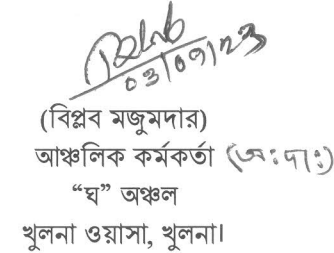 03/09/23
(বিপ্লব মজুমদার)
আঞ্চলিক কর্মকর্তা (অঃদাঃ)
“ঘ” অঞ্চল
খুলনা ওয়াসা, খুলনা।